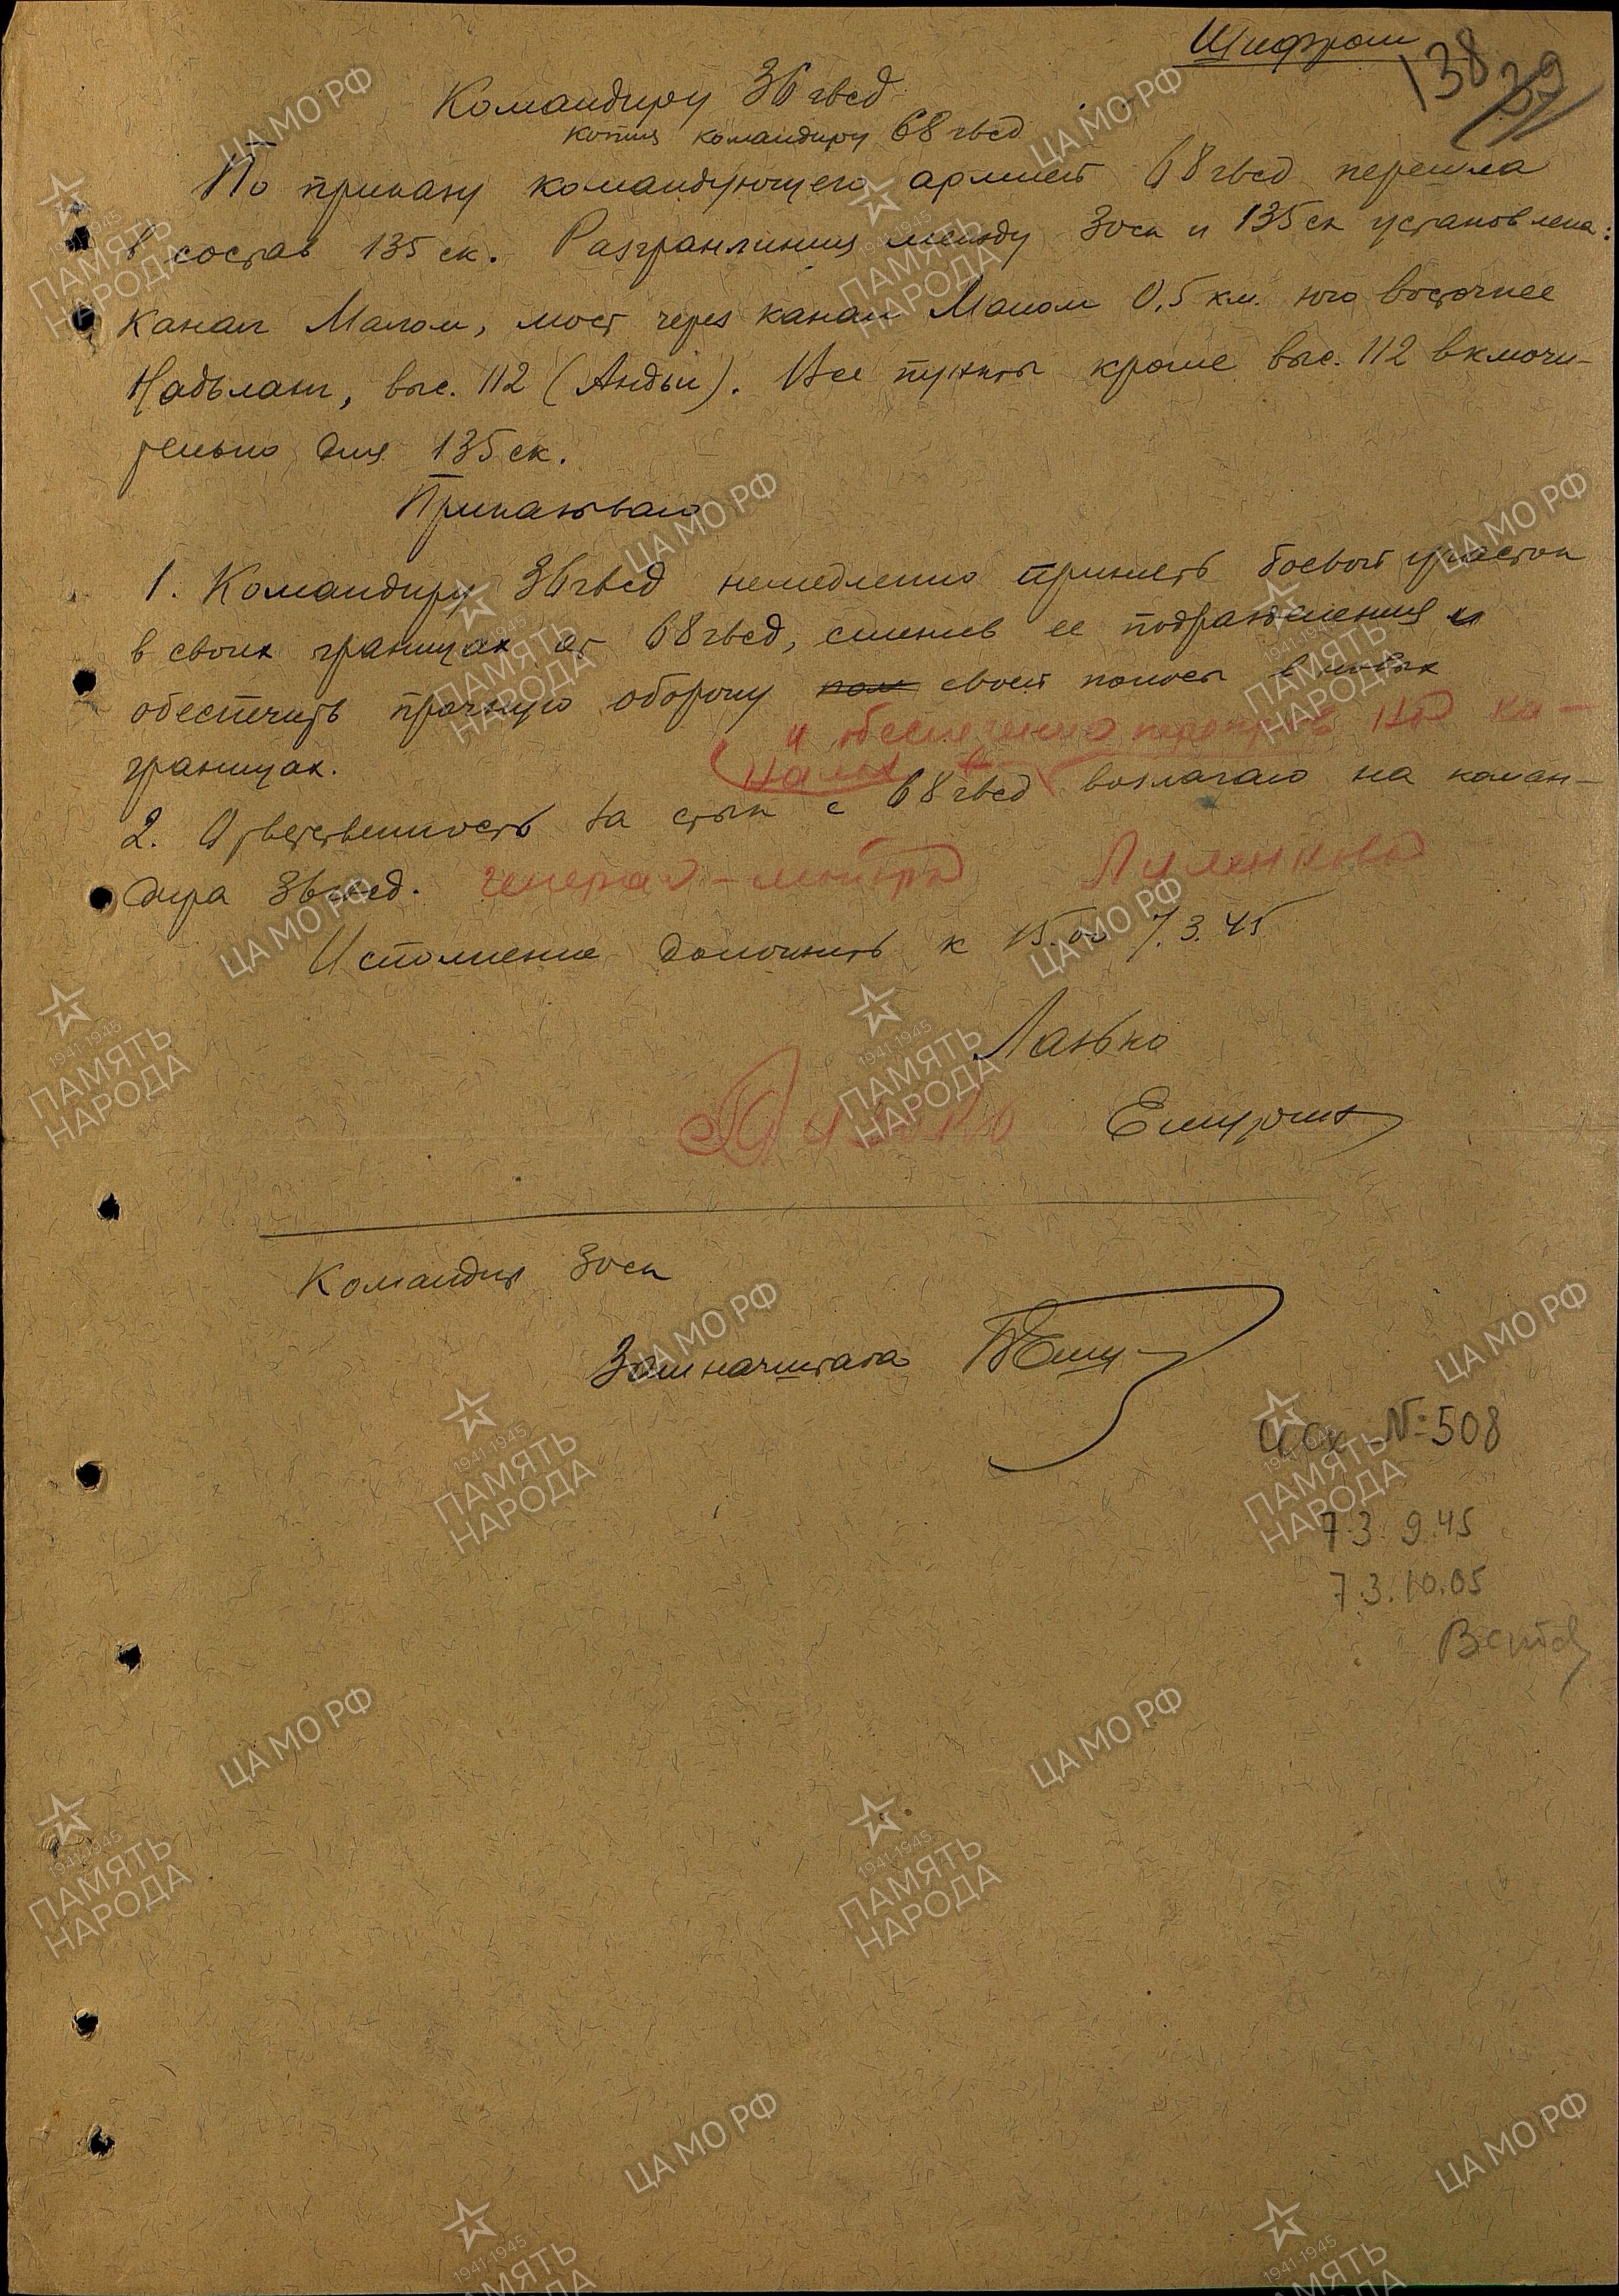 Шифром
138
39
Командиру 36 гвсд
копия командиру 68 гвсд
По приказу командующего армией 68 гвсд перешла
в состав 135 ск. Разгранлиния между 30ск и 135 ск установлена:
Канал Малом, мост через канал Малом 0,5 км. юго восточнее
Надьланг, выс. 112 (Андьи). Все пункты кроме выс. 112 включи-
тельно для 135 ск.
Приказываю
1. Командиру 36 гвсд немедленно принять боевой участок
в своих границах от 68 гвсд, сменив ее подразделения и
обеспечить прочную оборону своей полосы в новых
и обеспечение переправ над ка-
границах.
налах
2. Ответственность за стык с 68 гвсд возлагаю на коман-
дира 36 гвсд. генерал-майора Лиленкова
Исполнение доложить к 15.00 7.3.45
Лазько
Лазько
Командир 30ск
Зам начштаба
№ 508
7.3. 9.45
7.3. 10.05
ЦА МО РФ
1941-1945
ПАМЯТЬ
НАРОДА